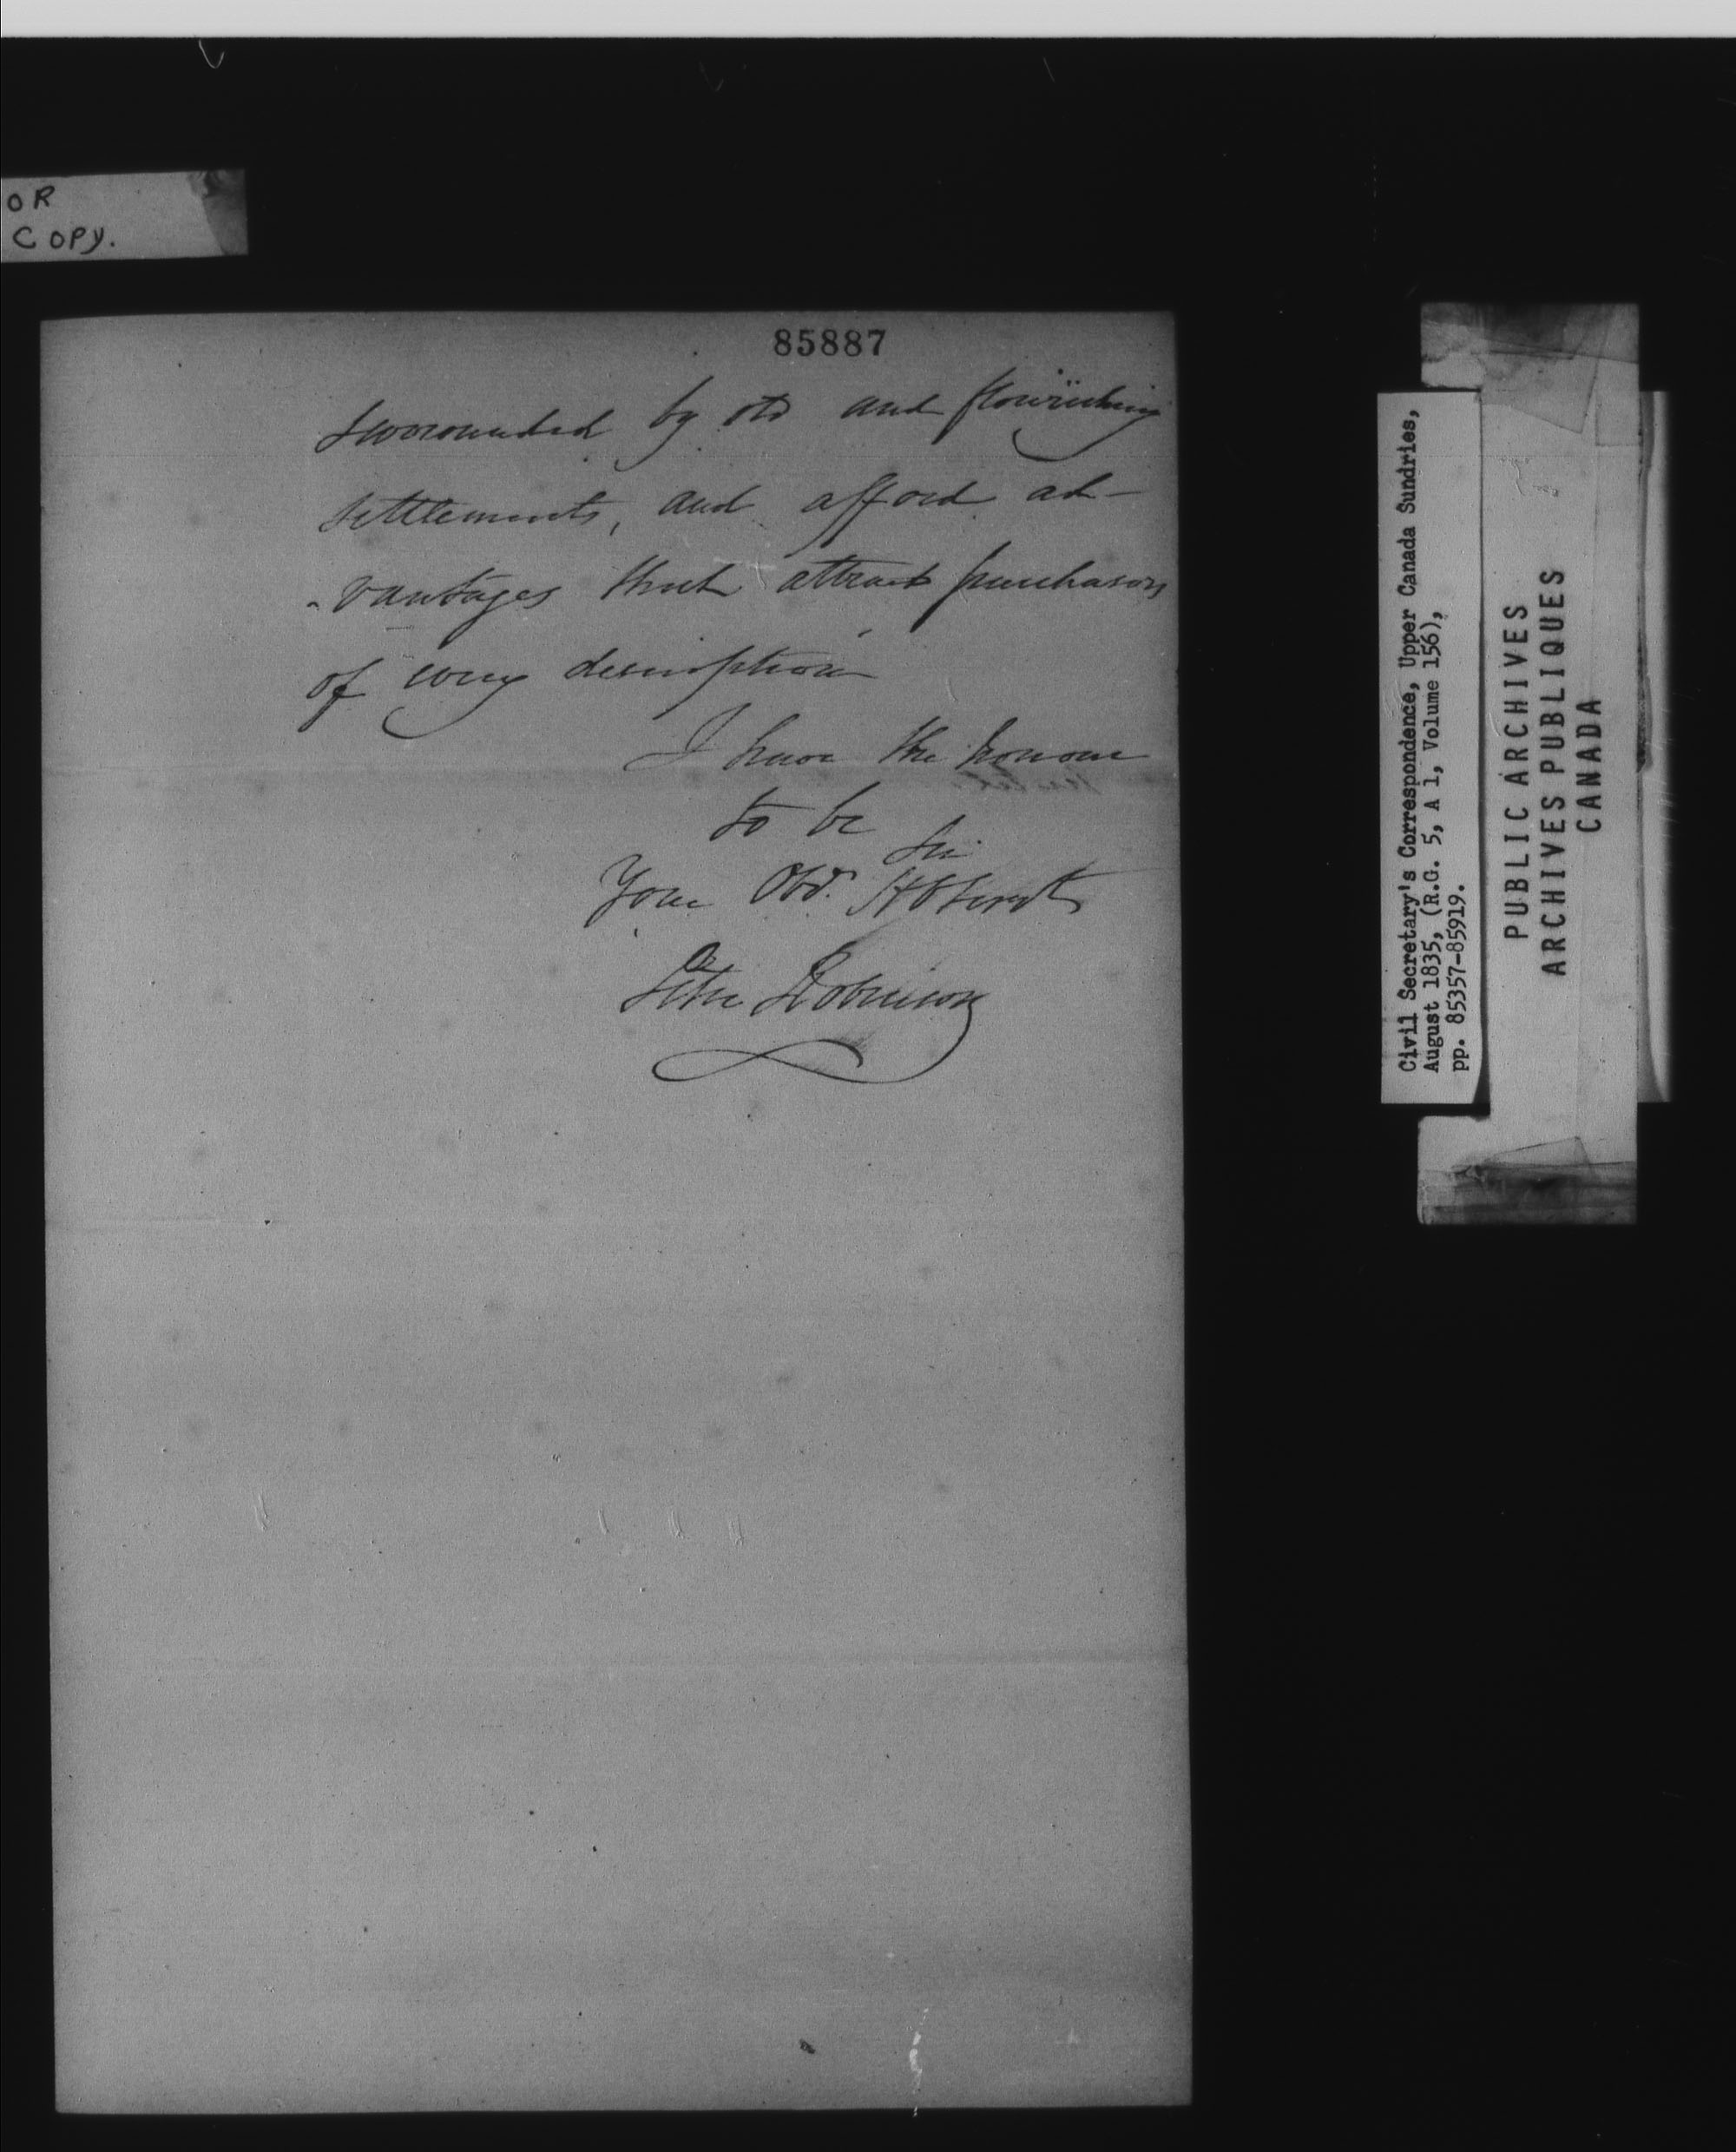 OR
COPY.
85887
surrounded by old and flourishing
settlements, and afford ad-
-vantages that attract purchasers
of every description
I have the honour
to be
Sir
Your Obt. H Servt
Peter Robinson
Civil Secretary's Correspondence, Upper Canada Sundries,
August 1835, (R.G. 5, A 1, Volume 156),
pp. 85357-85919.
PUBLIC ARCHIVES
ARCHIVES PUBLIQUES
CANADA